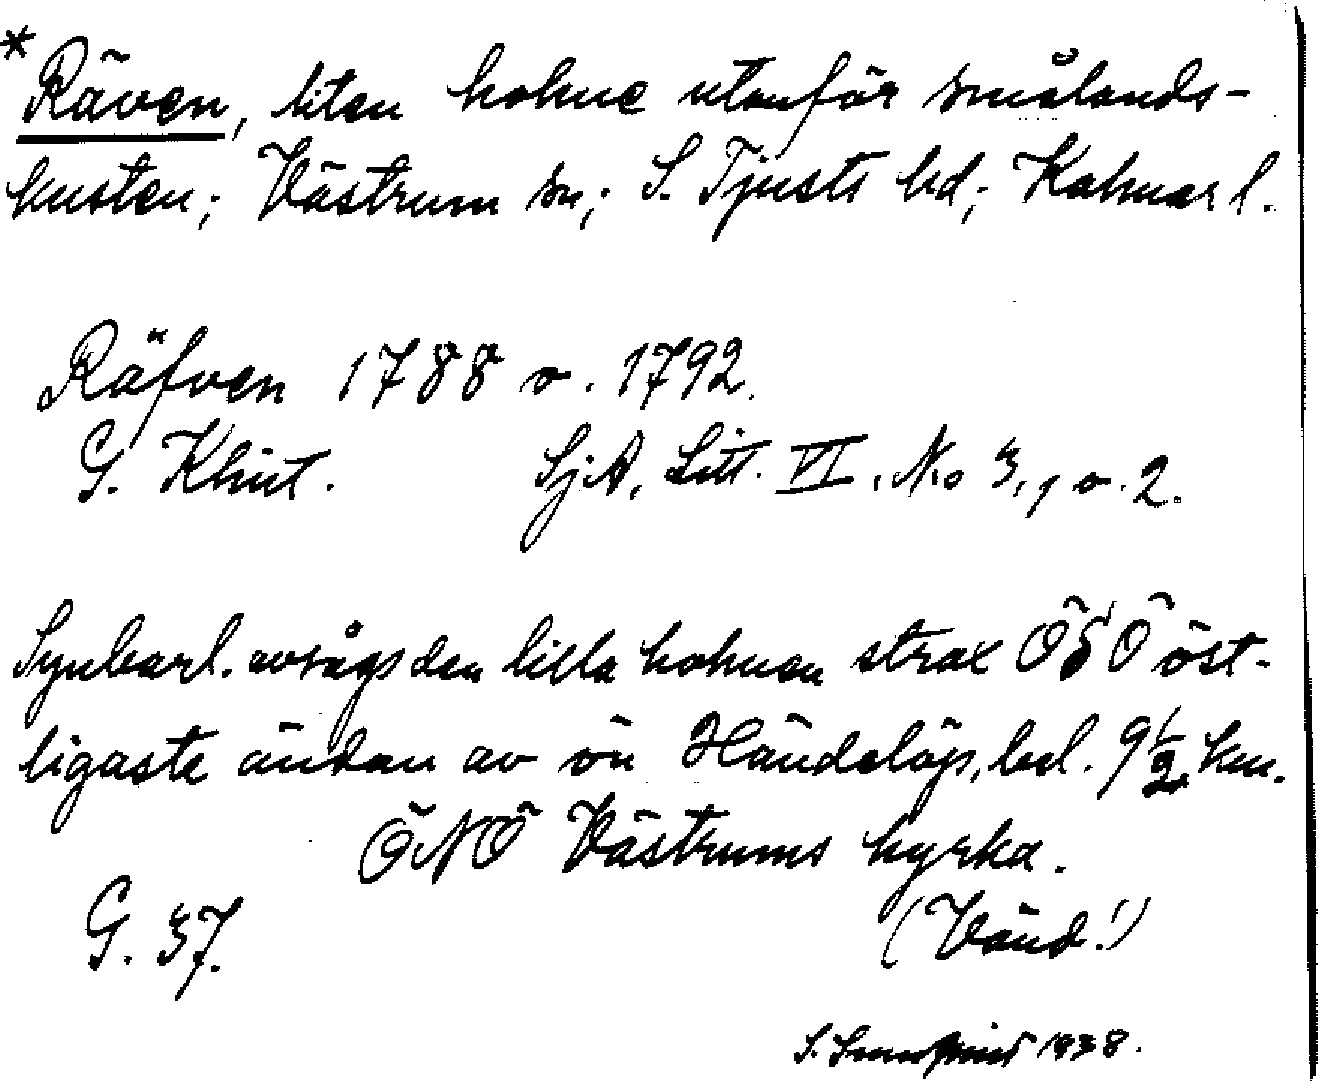 * Räven, liten holme utanför smålands-
kusten; Västrum sn; S. Tjusts hd; Kalmar l.
Räfven 1788 o. 1792.
G. Klint. SjA, Litt. VI, No 3, 1 o. 2.
Synbarl. avsågs den lilla holmen strax ÖSÖ öst-
ligaste ändan av ön Händelöp, bel. 9 1/2 km.
ÖNÖ Västrums kyrka.
G. 37. (Vänd!)
S. 1938.